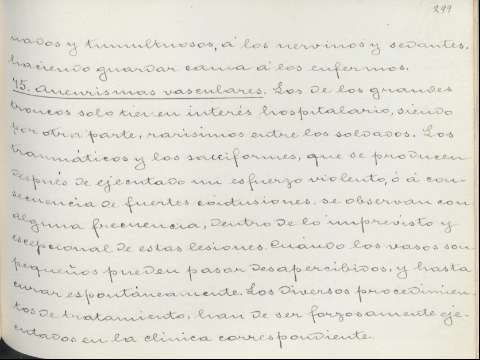 299
nados y tumultuosos, á los nervinos y sedantes,
haciendo guardar cama á los enfermos.
75. Aneurismas vasculares. Los de los grandes
troncos solo tienen interés hospitalario, siendo
por otra parte, rarisimos entre los soldados. Los
traumáticos y los sacciformes, que se producen
después de ejecutado un esfuerzo violento, ó á con-
secuencia de fuertes contusiones, se observan con
alguna frecuencia, dentro de lo imprevisto y
escepcional de estas lesiones. Cuando los vasos son
pequeños pueden pasar desapercibidos, y hasta
curar espontáneamente. Los diversos procedimien-
tos de tratamiento, han de ser forzosamente eje-
cutados en la clinica correspondiente.